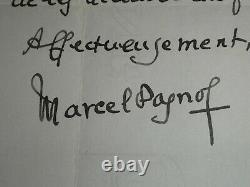 Affectueusement,
Marcel Pagnol
ebay